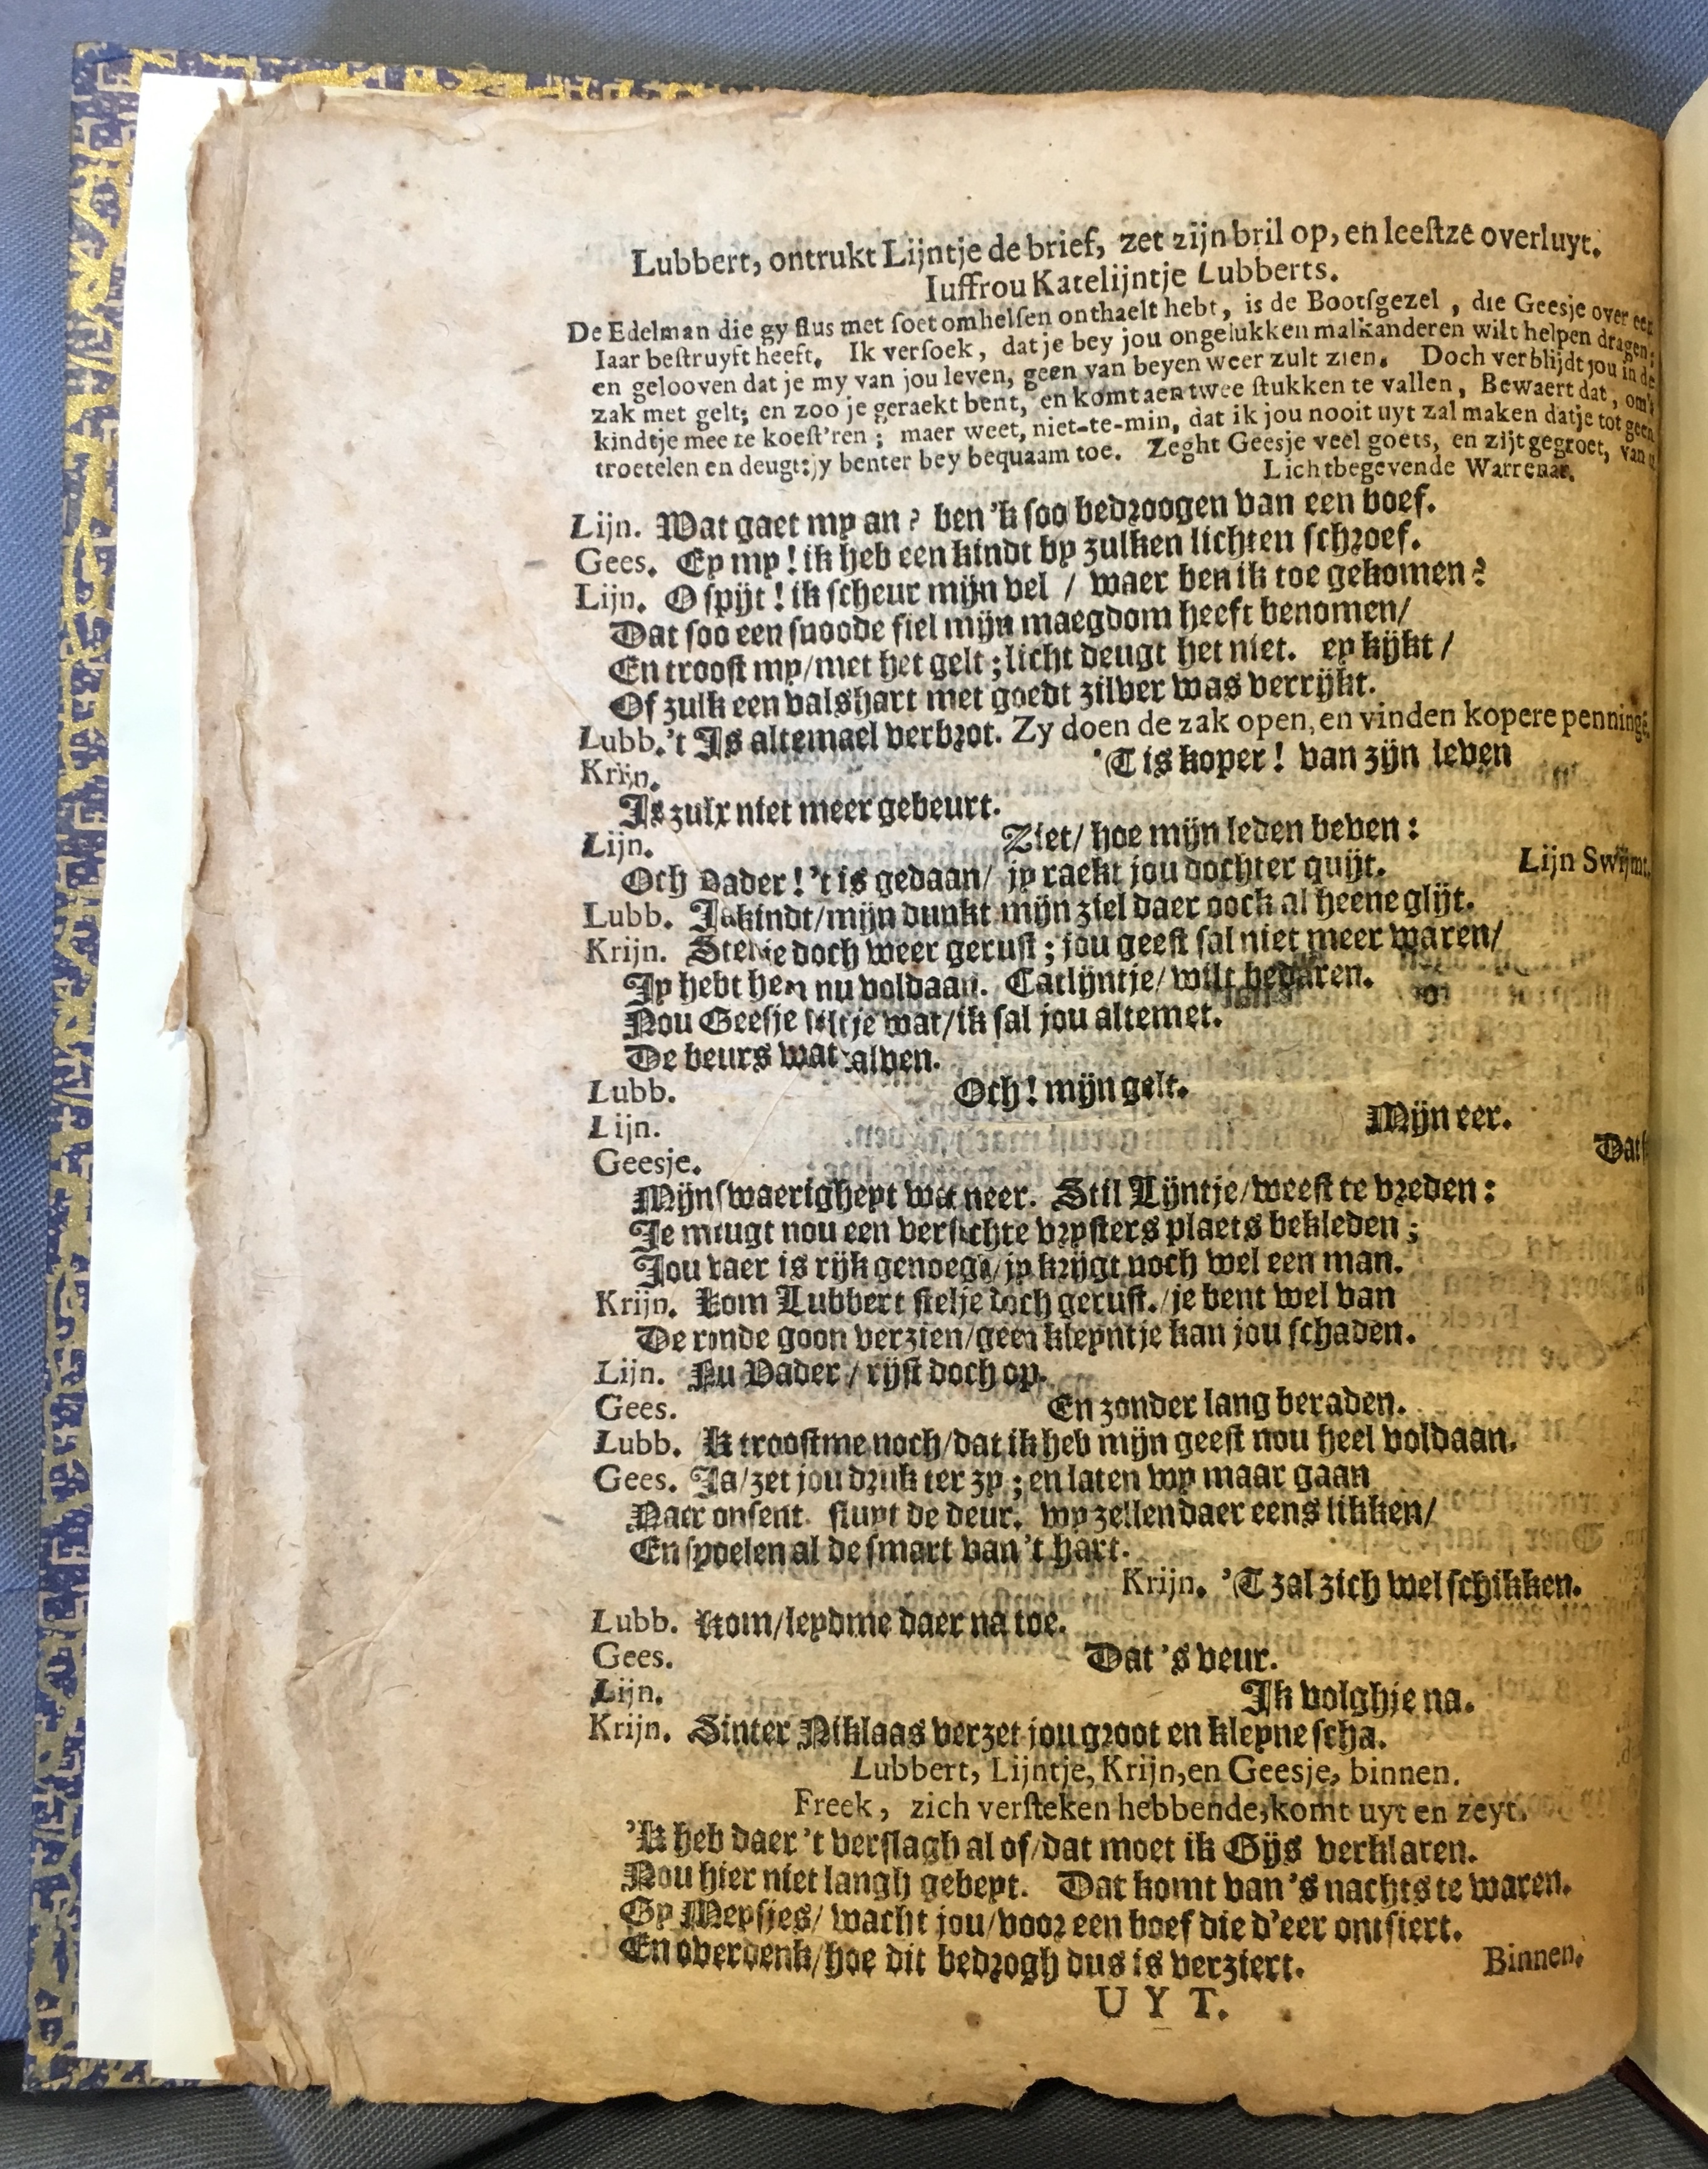 Lubbert, ontrukt Lijntje de brief, zet zijn bril op, en leeſtze overluyt.
Iuffrou Katelijntje Lubberts.
De Edelman die gy flus met ſoet omhelſen onthaelt hebt, is de Bootſgezel, die Geesje over een
Iaar beſtruyft heeft. Ik verſoek, dat je bey jou ongelukken malkanderen wilt helpen dragen;
en gelooven dat je my van jou leven, geen van beyen weer zult zien. Doch verblijdt jou in de
zak met gelt; en zoo je geraekt bent, en komt aen twee ſtukken te vallen, Bewaert dat, om't
kindtje mee te koeſt'ren; maer weet, niet-te-min, dat ik jou nooit uyt zal maken datje tot geen
troetelen en deugt: jy benter bey bequaam toe. Zeght Geesje veel goets, en zijt gegroet, van
Lichtbegevende Warrenar.
Lijn. Wat gaet my an? ben 'k ſoo bedroogen van een boef.
Gees. Ey my! ik heb een kindt by zulken lichten ſchroef.
Lijn. O ſpijt! ik ſcheur mijn vel / waer ben ik toe gekomen?
Dat ſoo een ſnoode fiel mijn maegdom heeft benomen/
En trooſt my/met het gelt; licht deugt het niet. ey kijkt /
Of zulk een valshart met goedt zilver was verrijkt.
Lubb. 't Is altemael verbrot. Zy doen de zak open, en vinden kopere penningē.
Krijn. 'T is koper! van zijn leven
Is zulx niet meer gebeurt.
Lijn. Ziet/ hoe mijn leden beven:
Och Vader! 't is gedaan/ jy raekt jou dochter quijt. Lijn Swijmt.
Lubb. Ja kindt/mijn dunkt mijn ziel daer oock al heene glijt.
Krijn. Stelt je doch weer geruſt; jou geeſt ſal niet meer waren/
Jy hebt hem nu voldaan. Catlijntje/ wilt bedaren.
Nou Geesje ſtiltje wat/ik ſal jou altemet.
De beurs wat zalven.
Lubb. Och! mijn gelt.
Lijn. Mijn eer.
Geesje. Dat
Mijn ſwaerigheyt wat neer. Stil Lijntje/weeſt te vreden:
Je meugt nou een verſochte vryſters plaets bekleden;
Jou vaer is rijk genoegh/jy krijgt noch wel een man.
Krijn. Kom Lubbert ſtelje doch geruſt./je bent wel van
De ronde goon verzien/geen kleyntje kan jou ſchaden.
Lijn. Nu Vader / rijſt doch op.
Gees. En zonder lang beraden.
Lubb. Ik trooſtme noch/dat ik heb mijn geeſt nou heel voldaan.
Gees. Ja/zet jou druk ter zy; en laten wy maar gaan
Naer onſent. ſluyt de deur. wy zellen daer eens likken/
En ſpoelen al de ſmart van 't hart.
Krijn. 'T zal zich wel ſchikken.
Lubb. Kom/leydme daer na toe.
Gees. Dat 's veur.
Lijn. Ik volgh je na.
Krijn. Sinter Niklaas verzet jou groot en kleyne ſcha.
Lubbert, Lijntje, Krijn, en Geesje, binnen.
Freek, zich verſteken hebbende, komt uyt en zeyt.
'k heb daer 't verſlagh al of/dat moet ik Gijs verklaren.
Nou hier niet langh gebeyt. Dat komt van 's nachts te waren.
Gy Meysjes/ wacht jou/voor een boef die d'eer ontſiert.
En overdenk/hoe dit bedrogh dus is verziert. Binnen.
UYT.